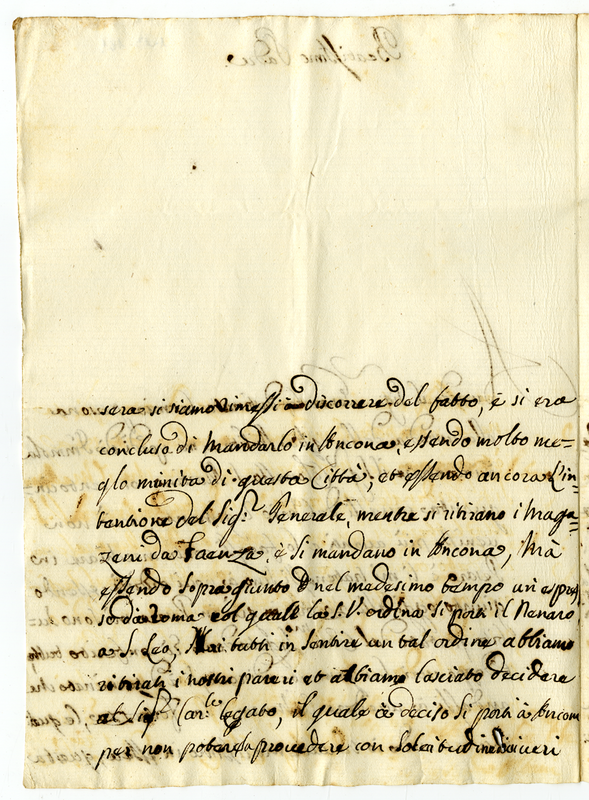 sera si siamo rimessi à discorrere del fatto, è si era
concluso di Mandarlo in Ancona, essendo molto me=
glo munita di questa Città; et essendo ancora L'in=
tentione del Sig.r Generale, mentre si ritirano i Maga=
zeni da Faenza, è si mandano in Ancona, Ma
essendo sopra giunto nel medesimo tempo un espres
so da Roma col quale la S.V. ordina si porti il Denaro
a S. Leo; Noi tutti in sentire un tal ordine abbiamo
ritirati i nostri pareri et abbiamo lasciato decidere
al Sig.r Car.le legato, il quale à deciso si porti à Ancona
per non potere provedere con solecitudine viveri